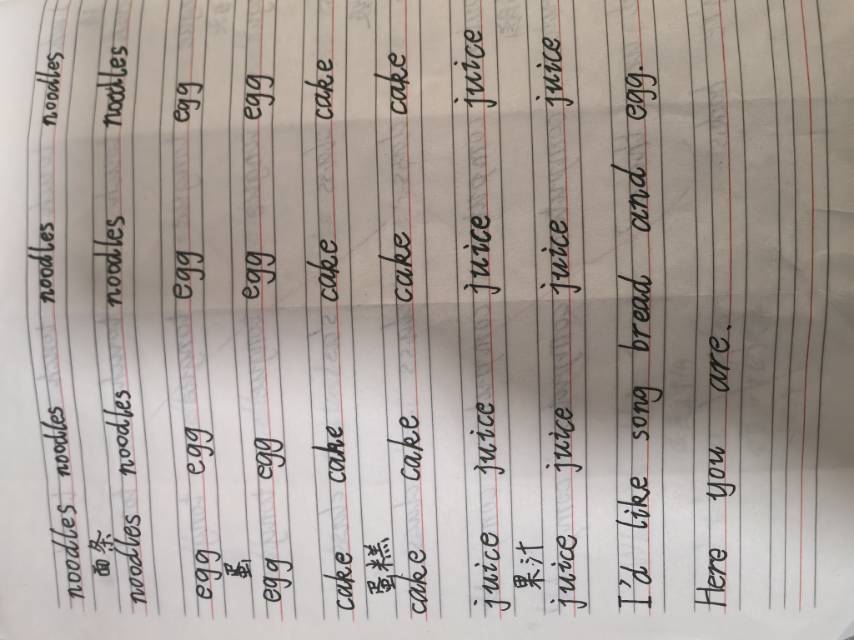 noodles noodles noodles noodles
面条
noodles noodles noodles noodles
egg egg egg egg
蛋
egg egg egg egg
cake cake cake cake
蛋糕
cake cake cake cake
juice juice juice juice
果汁
juice juice juice juice
I'd like song bread and egg.
Here you are.